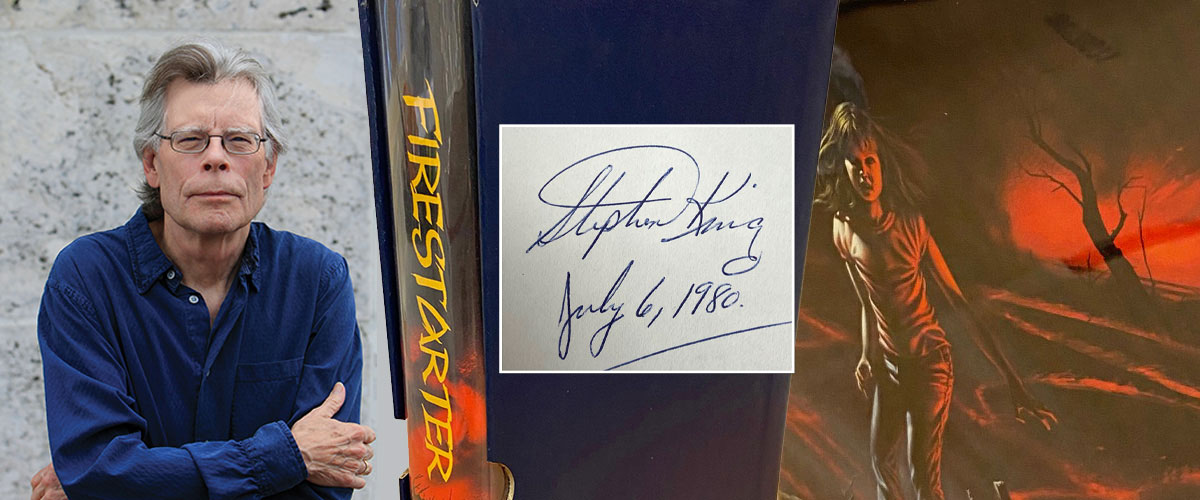 FIRESTARTER
Stephen King
July 6, 1980.